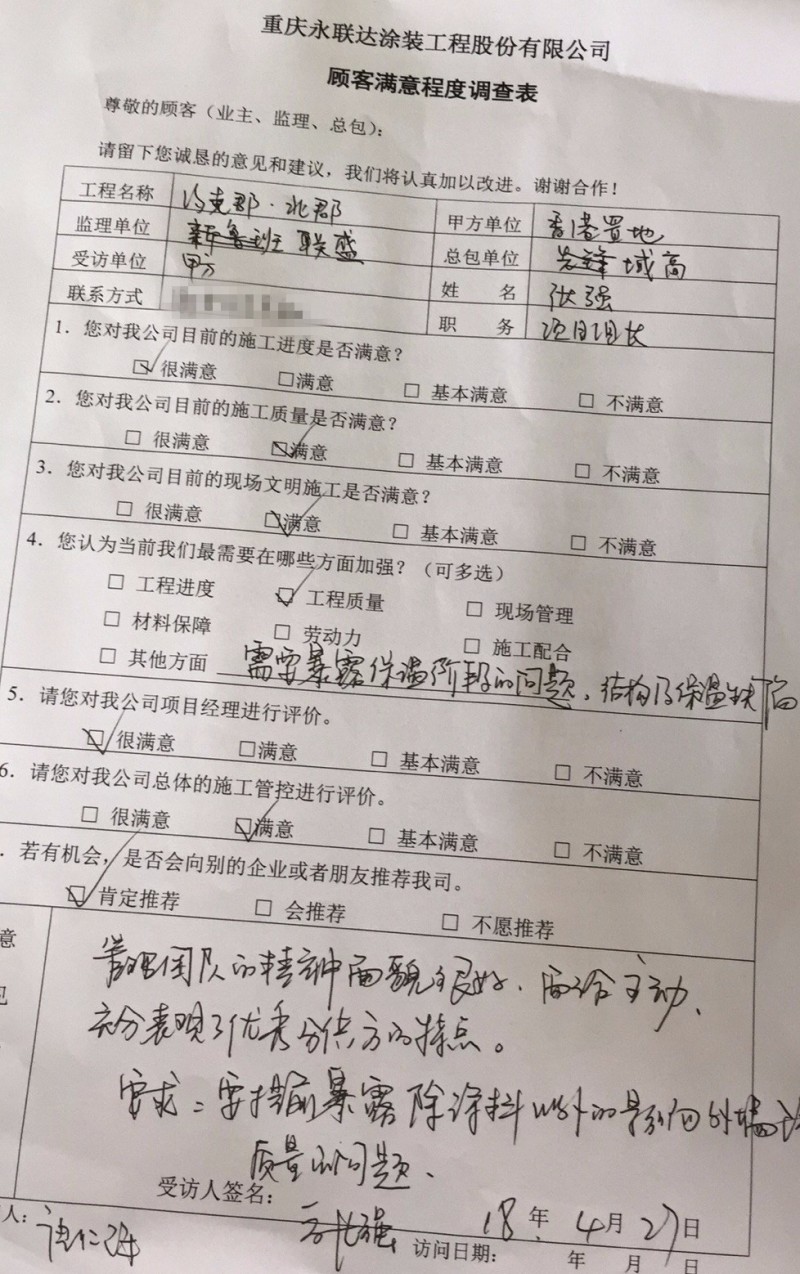 重庆永联达涂装工程股份有限公司
顾客满意程度调查表
尊敬的顾客（业主、监理、总包）：
请留下您诚恳的意见和建议，我们将认真加以改进。谢谢合作！
工程名称 约克郡·北郡 甲方单位 香港置地
监理单位 新鲁班 联盛 总包单位 先锋 城高
受访单位 甲方 姓 名 张强
联系方式 职 务 项目组长
1．您对我公司目前的施工进度是否满意？
☑ 很满意 □满意 □ 基本满意 □ 不满意
2．您对我公司目前的施工质量是否满意？
□ 很满意 ☑满意 □ 基本满意 □ 不满意
3．您对我公司目前的现场文明施工是否满意？
□ 很满意 ☑满意 □ 基本满意 □ 不满意
4．您认为当前我们最需要在哪些方面加强？（可多选）
□ 工程进度 ☑ 工程质量 □ 现场管理
□ 材料保障 □ 劳动力 □ 施工配合
□ 其他方面 需要暴露保温阶段的问题、结构及保温缺陷
5．请您对我公司项目经理进行评价。
☑ 很满意 □满意 □ 基本满意 □ 不满意
6．请您对我公司总体的施工管控进行评价。
□ 很满意 ☑满意 □ 基本满意 □ 不满意
．若有机会，是否会向别的企业或者朋友推荐我司。
☑ 肯定推荐 □ 会推荐 □ 不愿推荐
意
见
管理团队的精神面貌很好、配合主动、
充分表现了优秀分供方的特点。
要求：要提前暴露除涂料以外的影响外墙
质量的问题、
受访人签名： 张强 18年 4月 27日
人： 访问日期： 年 月 日